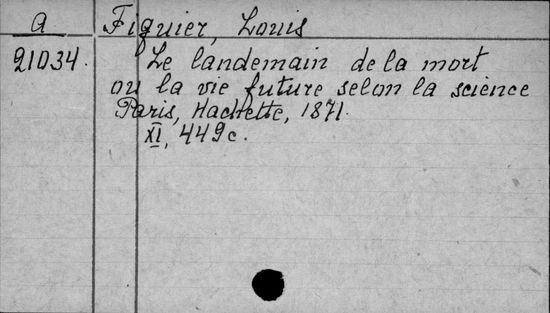 a Figuier, Louis
21034. Le landemain de la mort
ou la vie future selon la science
Paris, Hachette, 1871.
XI, 449c.